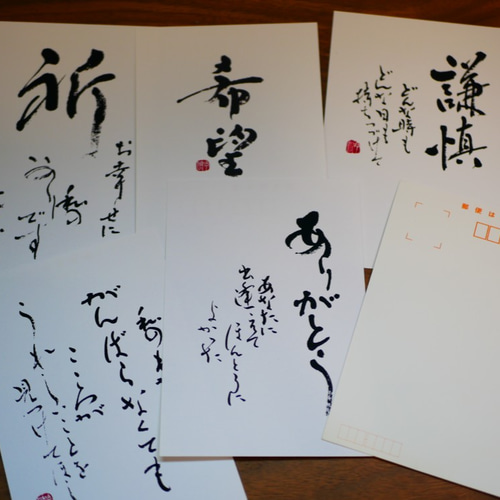 祈
お幸せに
私の
希望
謙慎
どんな時も
どんな日も
持ちつづけて
ありがとう
あなたに
出逢えて
ほんとうに
よかった
がんばらなくても
こころが
うれしいことを
見つけて
郵便は